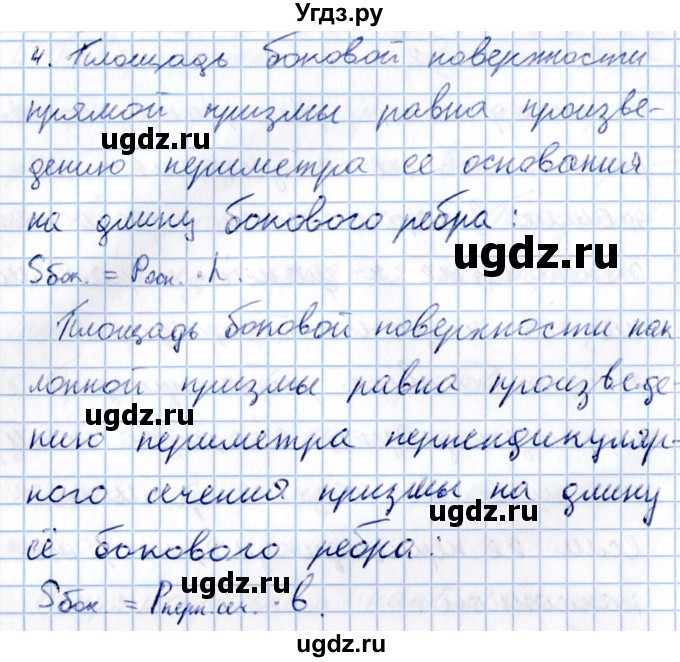 Угдз.ру
4. Площадь боковой поверхности
прямой призмы равна произве-
ugdz.ru
дению периметра её основания
на длину бокового ребра:
ugdz.ru
Sбок. = Pосн. · h.
Площадь боковой поверхности нак
лонной призмы равна произведе-
ugdz.ru
нию периметра перпендикуляр-
ного сечения призмы на длину
ugdz.ru
её бокового ребра:
ugdz.ru
Sбок. = Pперп.сеч. · b.
ugdz.ru